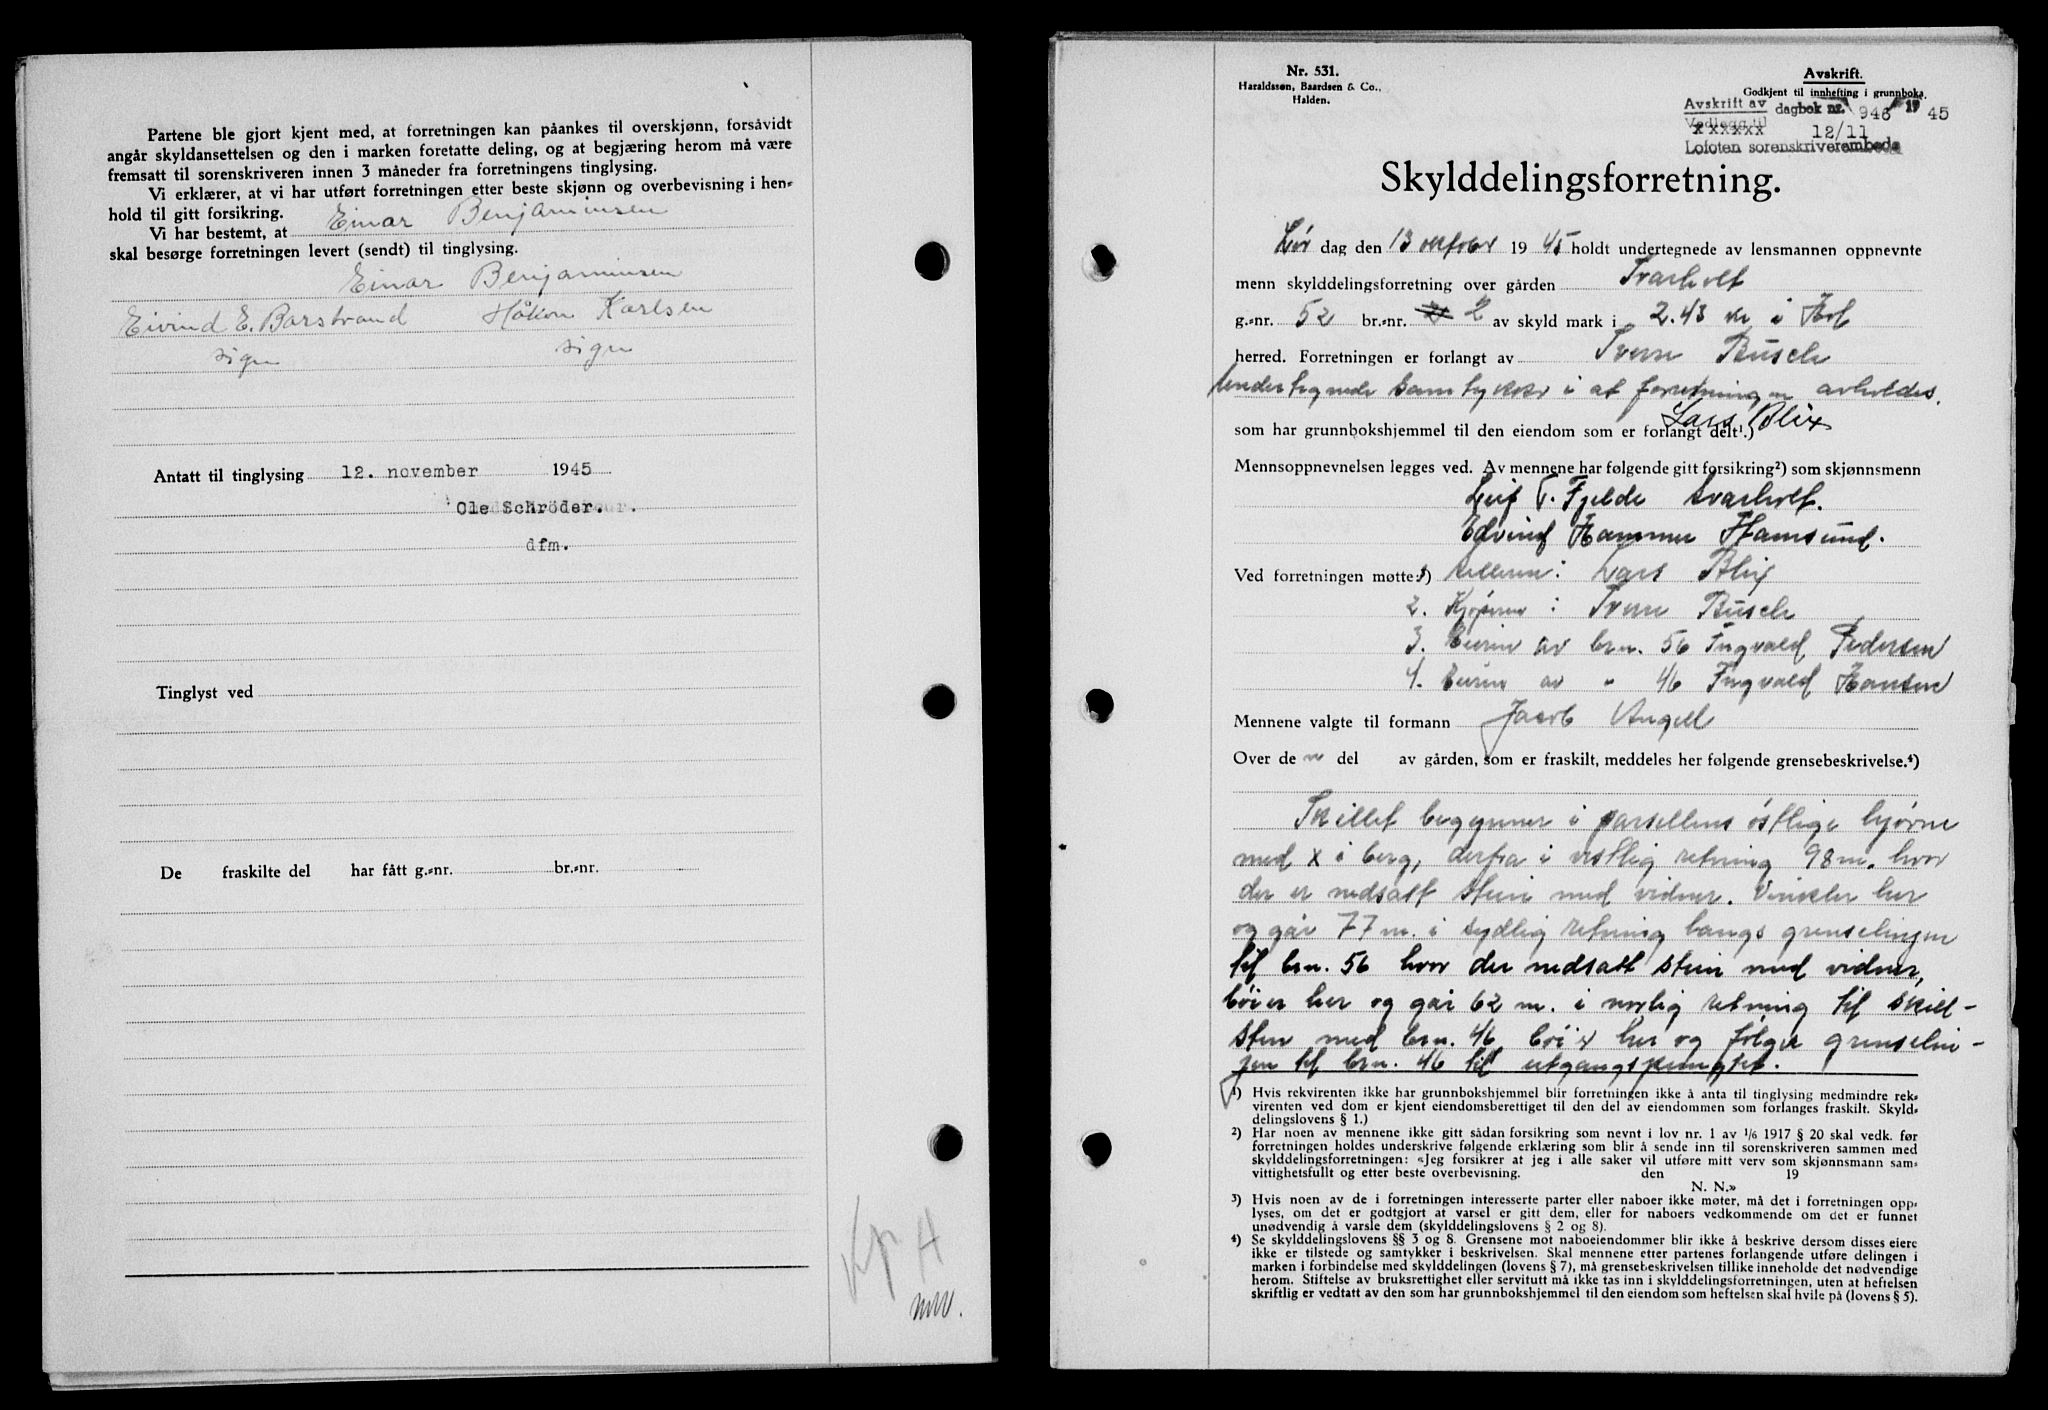 Partene ble gjort kjent med, at forretningen kan påankes til overskjønn, forsåvidt
angår skyldansettelsen og den i marken foretatte deling, og at begjæring herom må være
fremsatt til sorenskriveren innen 3 måneder fra forretningens tinglysing.
Vi erklærer, at vi har utført forretningen etter beste skjønn og overbevisning i hen-
hold til gitt forsikring.
Vi har bestemt, at Einar Benjaminsen
skal besørge forretningen levert (sendt) til tinglysing.
Einar Benjaminsen
Eivind E. Barstrand Håkon Karlsen
sign sign
Antatt til tinglysing 12. november 1945
Ole Schröder.
dfm.
Tinglyst ved
De fraskilte del har fått g.-nr. br.-nr.
Kp H
mw.
Nr. 531.
Haraldssøn, Baardsen & Co.,
Halden.
Avskrift.
Godkjent til innhefting i grunnboka.
Avskrift av dagbok nr. 948 19 45
Vedlegg til
xxxxxx 12/11
Lofoten sorenskriverembede
Skylddelingsforretning.
Lør dag den 13 oktober 1945 holdt undertegnede av lensmannen oppnevnte
menn skylddelingsforretning over gården Svarholt
g.-nr. 52 br.-nr. 2 av skyld mark i 2.43 kr i Hol
herred. Forretningen er forlangt av Sverre Busch
Undertegnede samtykker i at forretningen avholdes.
Lars Blix
som har grunnbokshjemmel til den eiendom som er forlangt delt¹.)
Mennsoppnevnelsen legges ved. Av mennene har følgende gitt forsikring²) som skjønnsmenn
Leif T. Fjelde Svarholt.
Edvind Hammer Hamsund.
Ved forretningen møtte:³) Selleren: Lars Blix
2. Kjøperen: Sverre Busch
3. Eieren av brn. 56 Ingvald Pedersen
4. Eieren av " 46 Ingvald Hansen
Mennene valgte til formann Jacob Angell
Over den del av gården, som er fraskilt, meddeles her følgende grensebeskrivelse.⁴)
Skillet begynner i parsellens østlige hjørne
med x i berg, derfra i vestlig retning 98 m. hvor
der er nedsatt stein med vidner. Vinkler her
og går 77 m. i sydlig retning langs grenselinjen
til brn. 56 hvor der nedsatt stein med vidner,
bøier her og går 62 m. i norlig retning til skill-
sten med brn. 46 bøier her og følger grenselin-
jen til brn. 46 til utgangspungtet.
¹) Hvis rekvirenten ikke har grunnbokshjemmel blir forretningen ikke å anta til tinglysing medmindre rek-
virenten ved dom er kjent eiendomsberettiget til den del av eiendommen som forlanges fraskilt. Skyld-
delingslovens § 1.)
²) Har noen av mennene ikke gitt sådan forsikring som nevnt i lov nr. 1 av 1/6 1917 § 20 skal vedk. før
forretningen holdes underskrive følgende erklæring som blir å sende inn til sorenskriveren sammen med
skylddelingsforretningen: «Jeg forsikrer at jeg i alle saker vil utføre mitt verv som skjønnsmann sam-
vittighetsfullt og etter beste overbevisning. den 19
N. N.»
³) Hvis noen av de i forretningen interesserte parter eller naboer ikke møter, må det i forretningen opp-
lyses, om det er godtgjort at varsel er gitt dem, eller for naboers vedkommende om det er funnet
unødvendig å varsle dem (skylddelingslovens § 2 og 8).
⁴) Se skylddelingslovens §§ 3 og 8. Grensene mot naboeiendommer blir ikke å beskrive dersom disses eiere
ikke er tilstede og samtykker i beskrivelsen. Skal mennene etter partenes forlangende utføre delingen i
marken i forbindelse med skylddelingen (lovens § 7), må grensebeskrivelsen tillike inneholde det nødvendige
herom. Stiftelse av bruksrettighet eller servitutt må ikke tas inn i skylddelingsforretningen, uten at heftelsen
skriftlig er vedtatt av den som har grunnbokshjemmel til den eiendom som heftelsen skal hvile på (lovens § 5).